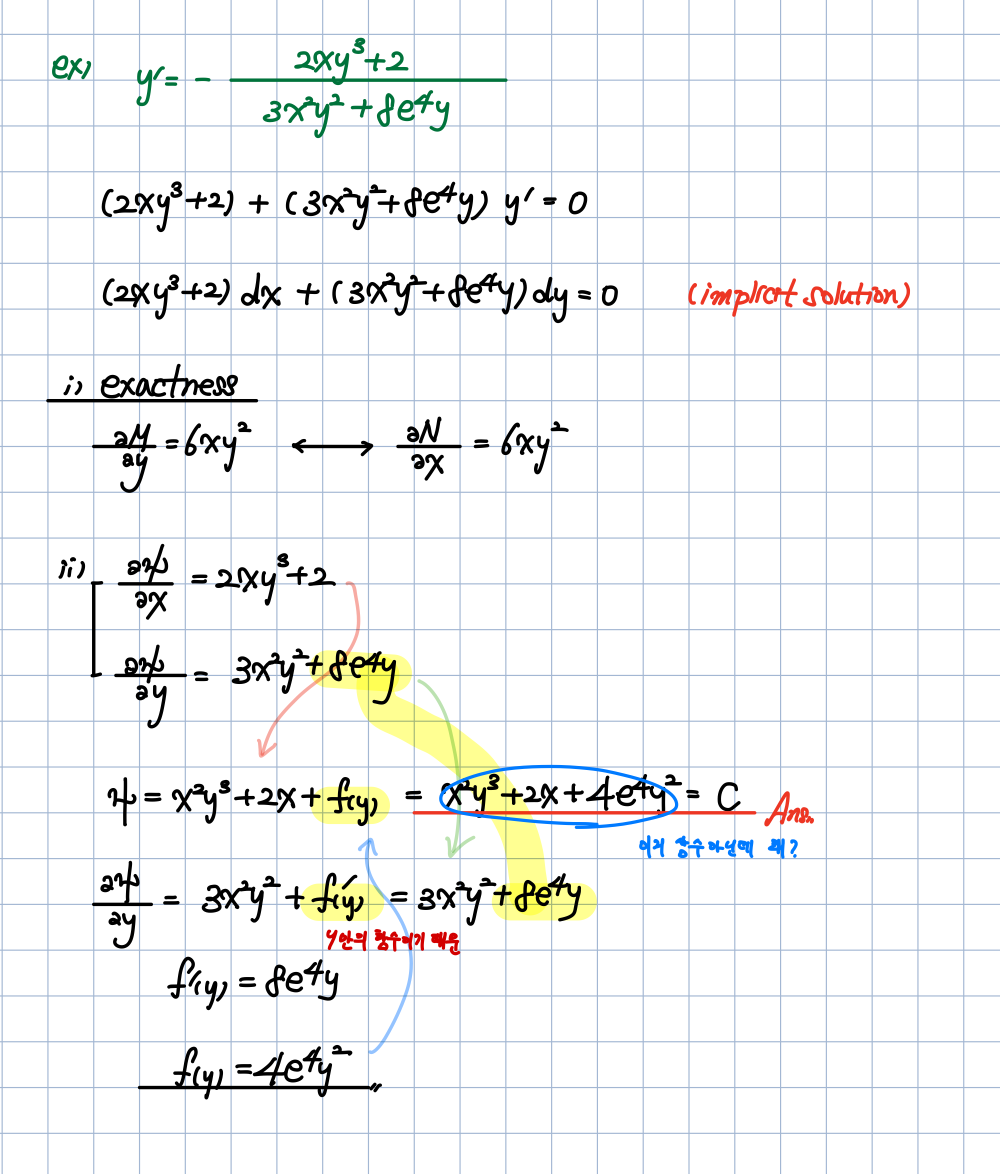 ex) y' = - (2xy³+2) / (3x²y² + 8e⁴y)
(2xy³+2) + (3x²y²+8e⁴y) y' = 0
(2xy³+2) dx + (3x²y²+8e⁴y) dy = 0 (implicit solution)
i) exactness
∂M/∂y = 6xy² ⟷ ∂N/∂x = 6xy²
ii) ∂ψ/∂x = 2xy³+2
∂ψ/∂y = 3x²y²+8e⁴y
ψ = x²y³+2x+f(y) = x²y³+2x+4e⁴y² = C Ans.
이거 상수 아닌데 왜?
∂ψ/∂y = 3x²y² + f'(y) = 3x²y²+8e⁴y
y만의 함수이기 때문
f'(y) = 8e⁴y
f(y) = 4e⁴y² 〃